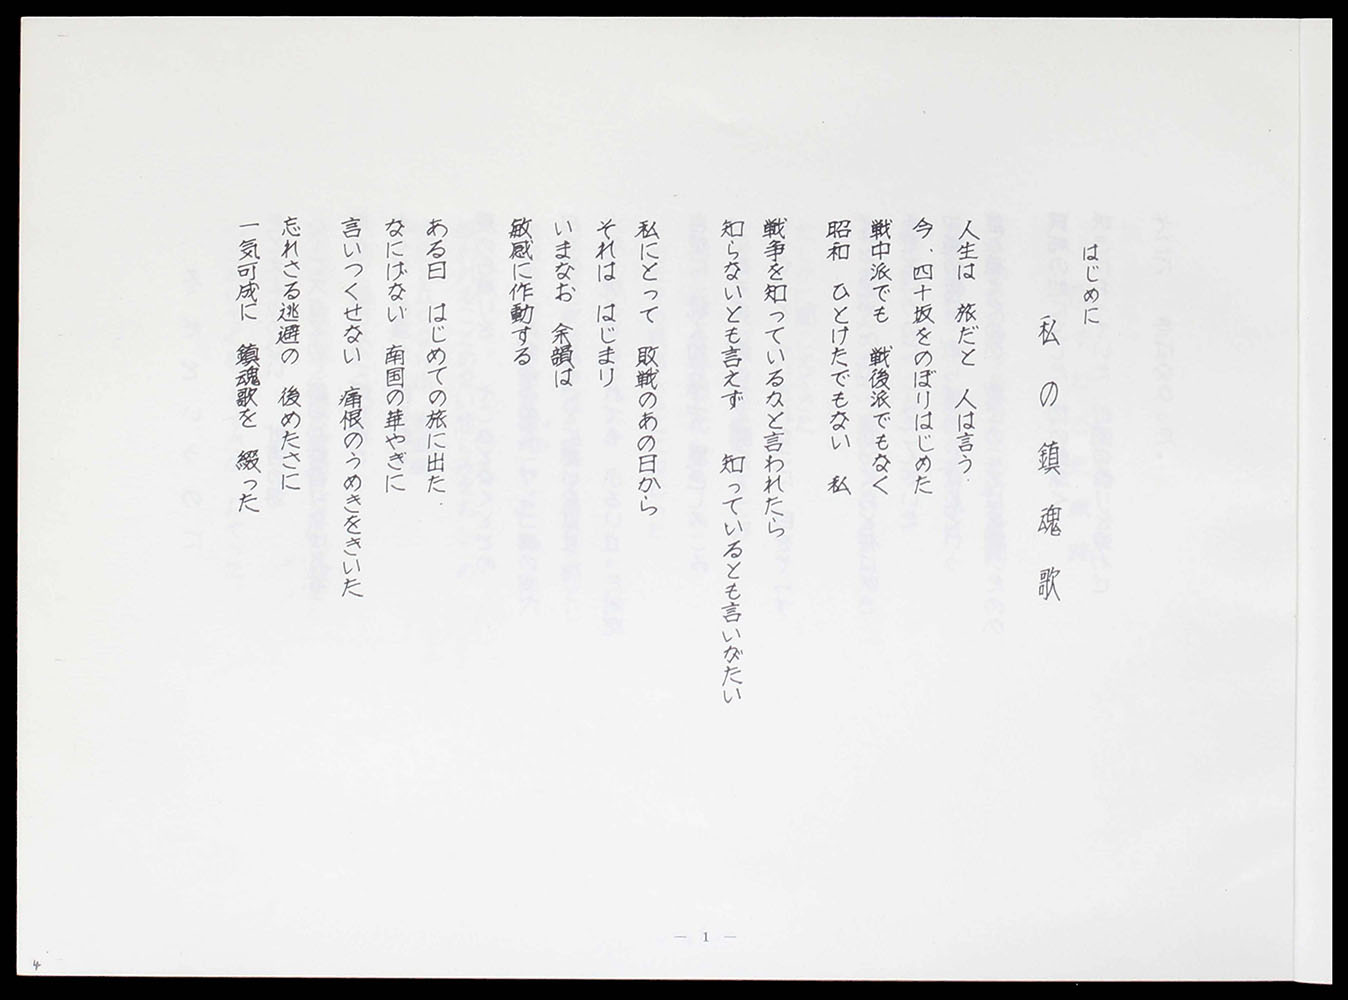 はじめに
私の鎮魂歌
人生は 旅だと 人は言う.
今、四十坂をのぼりはじめた
戦中派でも 戦後派でもなく
昭和 ひとけたでもない 私
戦争を知っているなと言われたら
知らないとも言えず 知っているとも言いがたい
私にとって 敗戦のあの日から
それは はじまり
いまなお 余韻は
敏感に作動する
ある日 はじめての旅に出た.
なにげない 南国の華やぎに
言いつくせない 痛恨のうめきをきいた
忘れさる逃避の 後めたさに
一気可成に 鎮魂歌を 綴った
— 1 —
4